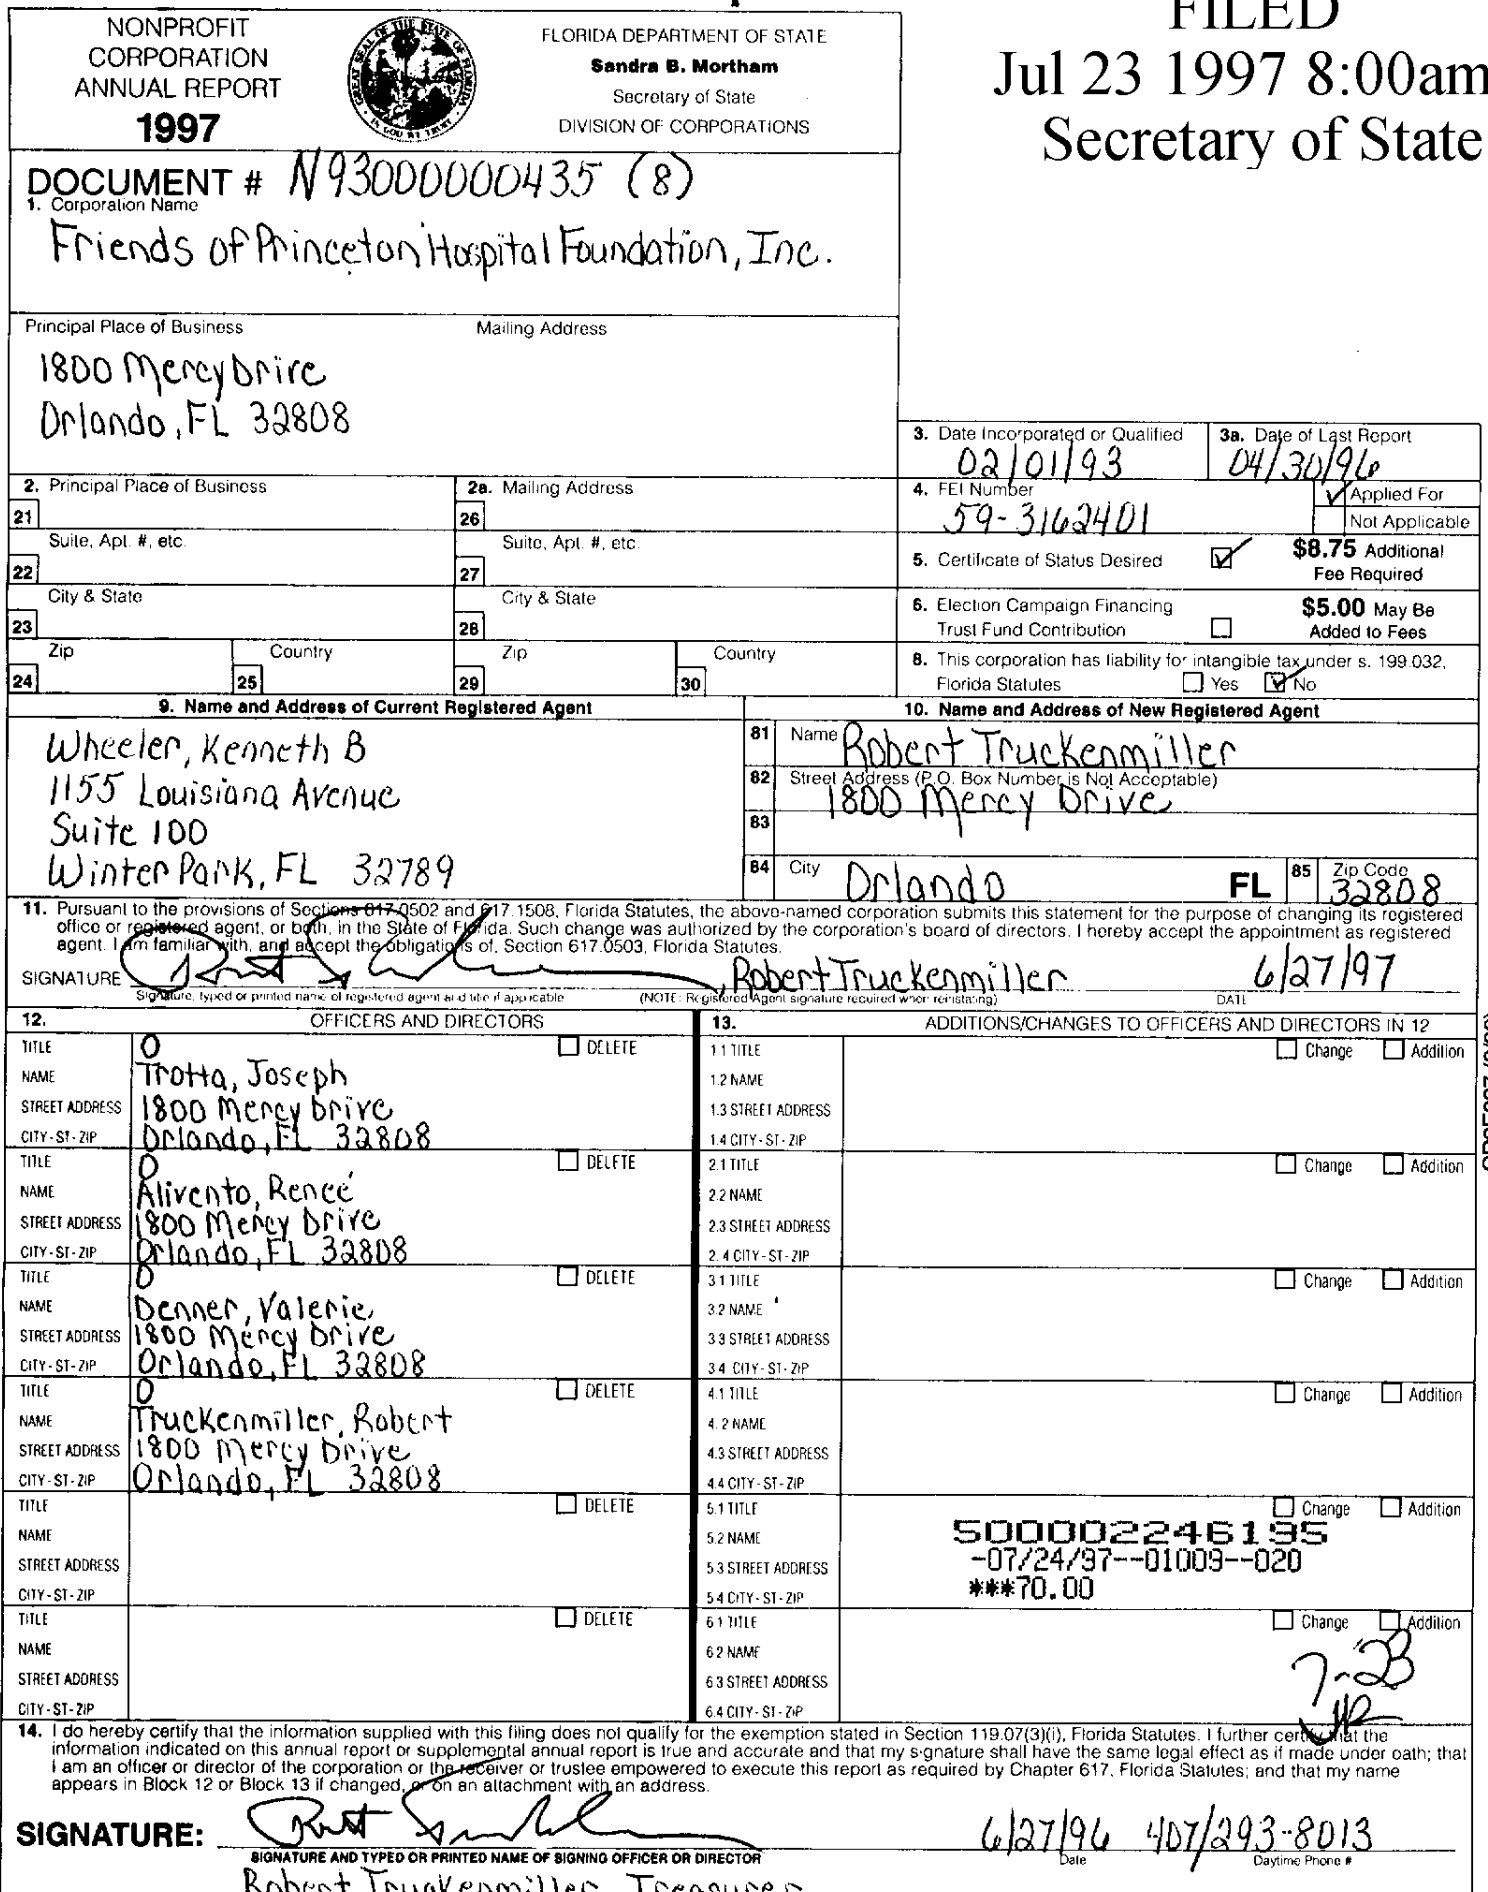 NONPROFIT
CORPORATION
ANNUAL REPORT
1997
GREAT SEAL OF THE STATE OF FLORIDA
IN GOD WE TRUST
FLORIDA DEPARTMENT OF STATE
Sandra B. Mortham
Secretary of State
DIVISION OF CORPORATIONS
FILED
Jul 23 1997 8:00am
Secretary of State
DOCUMENT # N93000000435 (8)
1. Corporation Name
Friends of Princeton Hospital Foundation, Inc.
Principal Place of Business Mailing Address
1800 Mercy Drive
Orlando, FL 32808
3. Date Incorporated or Qualified 02/01/93
3a. Date of Last Report 04/30/96
2. Principal Place of Business
2a. Mailing Address
21 26
Suite, Apt. #, etc. Suite, Apt. #, etc.
22 27
City & State City & State
23 28
Zip Country Zip Country
24 25 29 30
4. FEI Number 59-3162401
Applied For
Not Applicable
5. Certificate of Status Desired
$8.75 Additional
Fee Required
6. Election Campaign Financing
Trust Fund Contribution
$5.00 May Be
Added to Fees
8. This corporation has liability for intangible tax under s. 199.032,
Florida Statutes Yes No
9. Name and Address of Current Registered Agent
Wheeler, Kenneth B
1155 Louisiana Avenue
Suite 100
Winter Park, FL 32789
10. Name and Address of New Registered Agent
81 Name Robert Truckenmiller
82 Street Address (P.O. Box Number is Not Acceptable)
1800 Mercy Drive
83
84 City Orlando FL 85 Zip Code 32808
11. Pursuant to the provisions of Sections 617.0502 and 617.1508, Florida Statutes, the above-named corporation submits this statement for the purpose of changing its registered
office or registered agent, or both, in the State of Florida. Such change was authorized by the corporation's board of directors. I hereby accept the appointment as registered
agent. I am familiar with, and accept the obligations of, Section 617.0503, Florida Statutes.
SIGNATURE , Robert Truckenmiller 6/27/97
Signature, typed or printed name of registered agent and title if applicable (NOTE: Registered Agent signature required when reinstating) DATE
12. OFFICERS AND DIRECTORS
13. ADDITIONS/CHANGES TO OFFICERS AND DIRECTORS IN 12
TITLE D DELETE
NAME Trotta, Joseph
STREET ADDRESS 1800 Mercy Drive
CITY-ST-ZIP Orlando, FL 32808
1.1 TITLE Change Addition
1.2 NAME
1.3 STREET ADDRESS
1.4 CITY-ST-ZIP
TITLE D DELETE
NAME Alivento, Reneé
STREET ADDRESS 1800 Mercy Drive
CITY-ST-ZIP Orlando, FL 32808
2.1 TITLE Change Addition
2.2 NAME
2.3 STREET ADDRESS
2.4 CITY-ST-ZIP
TITLE D DELETE
NAME Denner, Valerie
STREET ADDRESS 1800 Mercy Drive
CITY-ST-ZIP Orlando, FL 32808
3.1 TITLE Change Addition
3.2 NAME
3.3 STREET ADDRESS
3.4 CITY-ST-ZIP
TITLE D DELETE
NAME Truckenmiller, Robert
STREET ADDRESS 1800 Mercy Drive
CITY-ST-ZIP Orlando, FL 32808
4.1 TITLE Change Addition
4.2 NAME
4.3 STREET ADDRESS
4.4 CITY-ST-ZIP
TITLE DELETE
NAME
STREET ADDRESS
CITY-ST-ZIP
5.1 TITLE Change Addition
5.2 NAME
5.3 STREET ADDRESS
5.4 CITY-ST-ZIP
500002246195
-07/24/97--01009--020
***70.00
TITLE DELETE
NAME
STREET ADDRESS
CITY-ST-ZIP
6.1 TITLE Change Addition
6.2 NAME
6.3 STREET ADDRESS
6.4 CITY-ST-ZIP
7-23
14. I do hereby certify that the information supplied with this filing does not qualify for the exemption stated in Section 119.07(3)(i), Florida Statutes. I further certify that the
information indicated on this annual report or supplemental annual report is true and accurate and that my signature shall have the same legal effect as if made under oath; that
I am an officer or director of the corporation or the receiver or trustee empowered to execute this report as required by Chapter 617, Florida Statutes; and that my name
appears in Block 12 or Block 13 if changed, or on an attachment with an address.
SIGNATURE: 6/27/96 407/293-8013
SIGNATURE AND TYPED OR PRINTED NAME OF SIGNING OFFICER OR DIRECTOR Date Daytime Phone #
Robert Truckenmiller, Treasurer